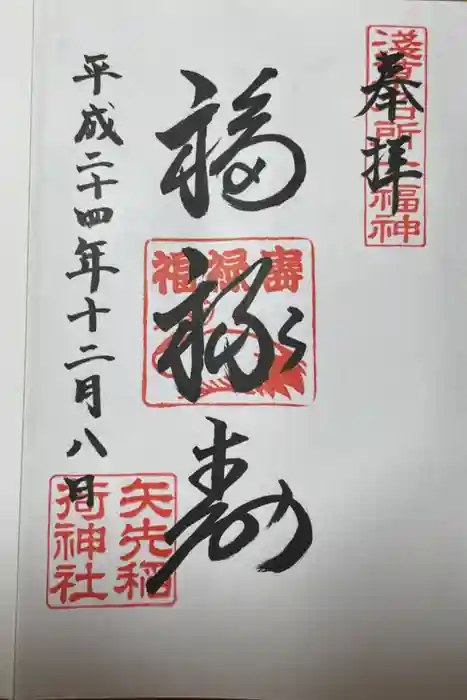 奉拝
淺草名所七福神
福禄寿
福禄壽
平成二十四年十二月八日
矢先稲
荷神社